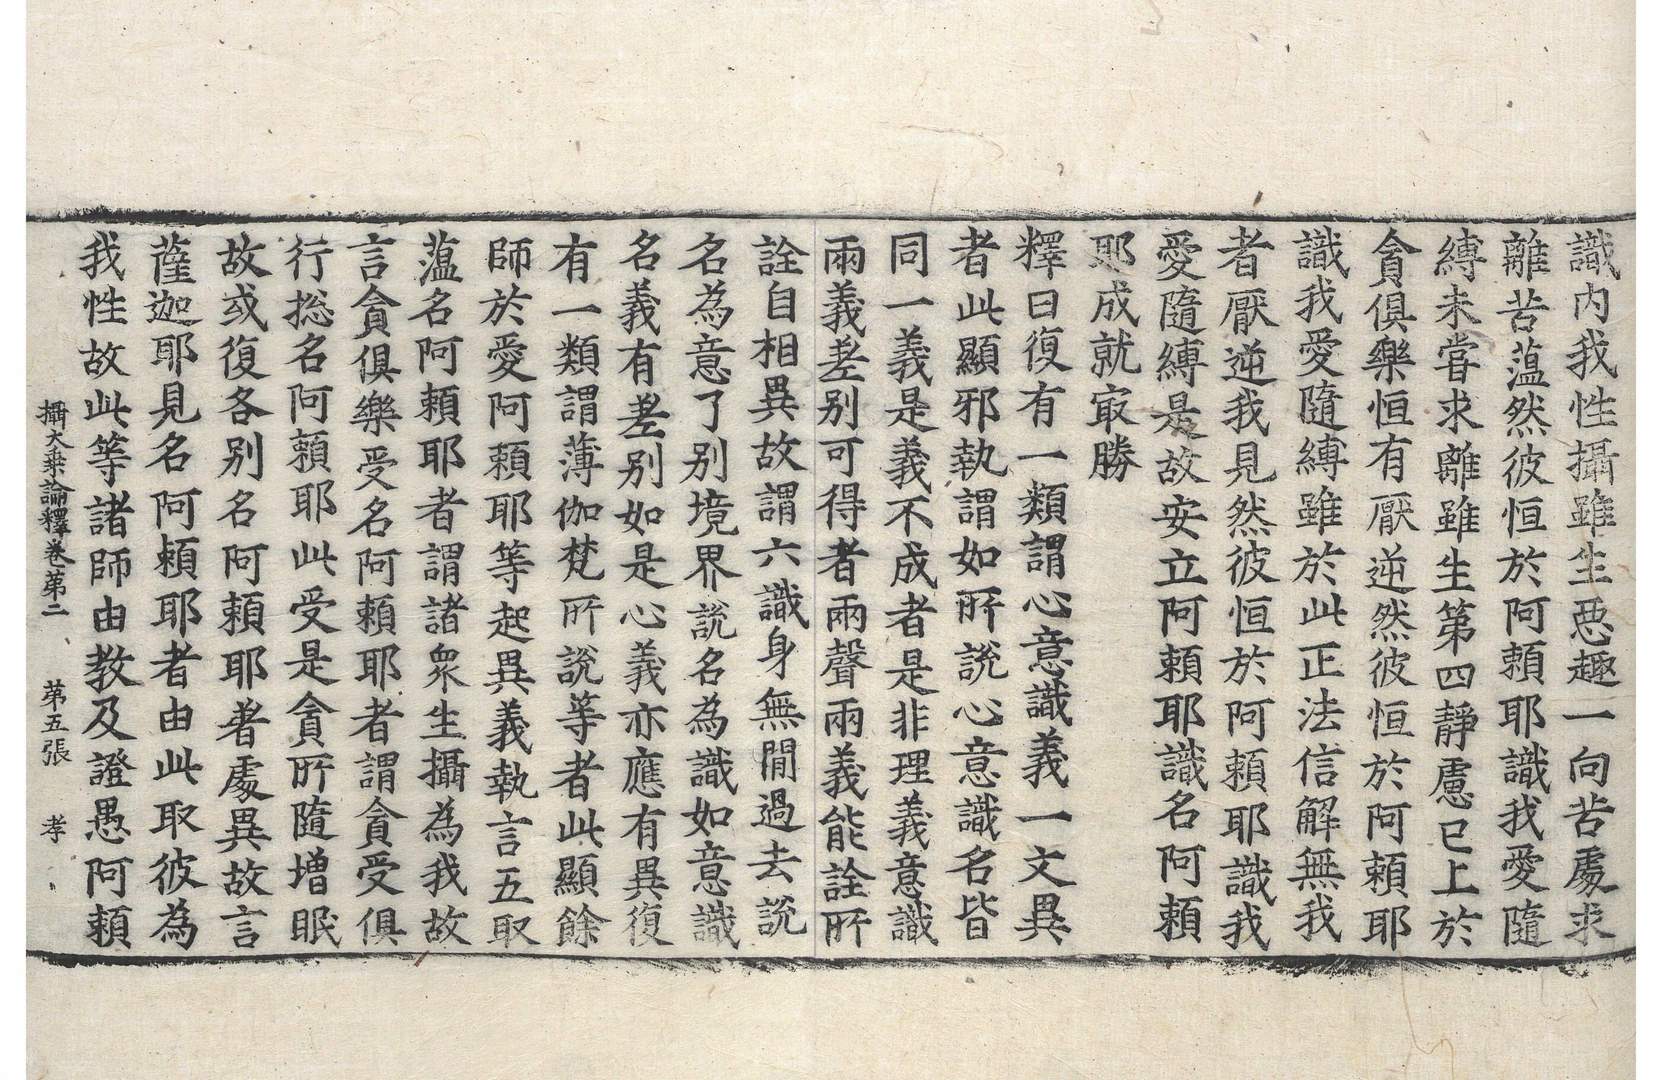 識内我性攝雖生惡趣一向苦處求
離苦薀然彼恒於阿頼耶識我愛隨
縛未嘗求離雖生第四靜慮已上於
貪俱樂恒有厭逆然彼恒於阿頼耶
識我愛隨縛雖於此正法信解無我
者厭逆我見然彼恒於阿頼耶識我
愛隨縛是故安立阿頼耶識名阿頼
耶成就㝡勝
釋曰復有一類謂心意識義一文異
者此顯邪執謂如所說心意識名皆
同一義是義不成者是非理義意識
兩義差别可得者兩聲兩義能詮所
詮自相異故謂六識身無間過去說
名為意了别境界說名為識如意識
名義有差别如是心義亦應有異復
有一類謂薄伽梵所說等者此顯餘
師於愛阿頼耶等起異義執言五取
薀名阿頼耶者謂諸衆生攝為我故
言貪俱樂受名阿頼耶者謂貪受俱
行捴名阿頼耶此受是貪所隨增眠
故或復各别名阿頼耶者處異故言
薩迦耶見名阿頼耶者由此取彼為
我性故此等諸師由教及證愚阿頼
攝大乗論釋卷第二　第五張　孝